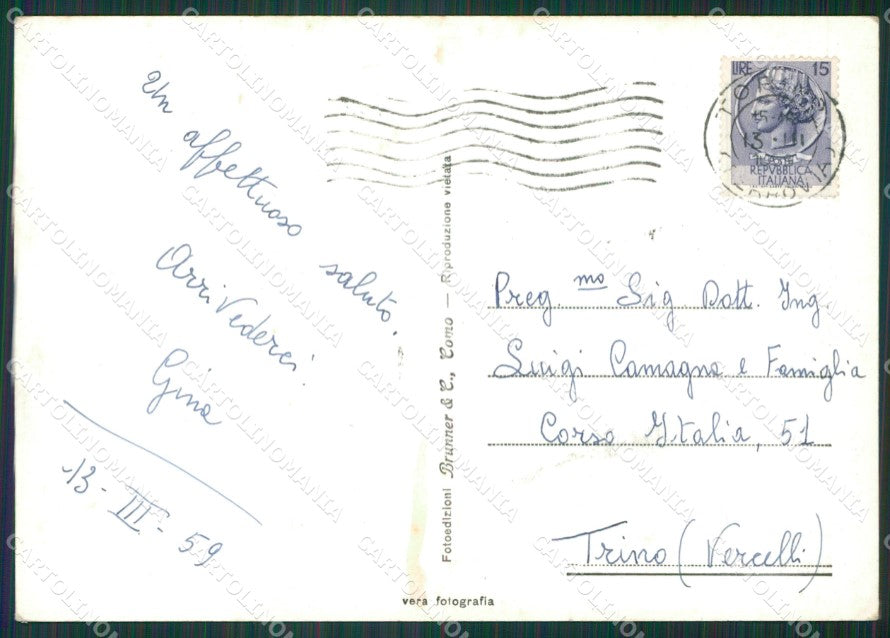 Un affettuoso saluto.
ArriVederci!
Gina
13-III-59
Fotoedizioni Brunner & C., Como — Riproduzione vietata
vera fotografia
LIRE 15
REPVBBLICA
ITALIANA
13 . III
Preg.mo Sig Dott. Ing.
Luigi Camagna e Famiglia
Corso Italia, 51
Trino (Vercelli)
CARTOLINOMANIA